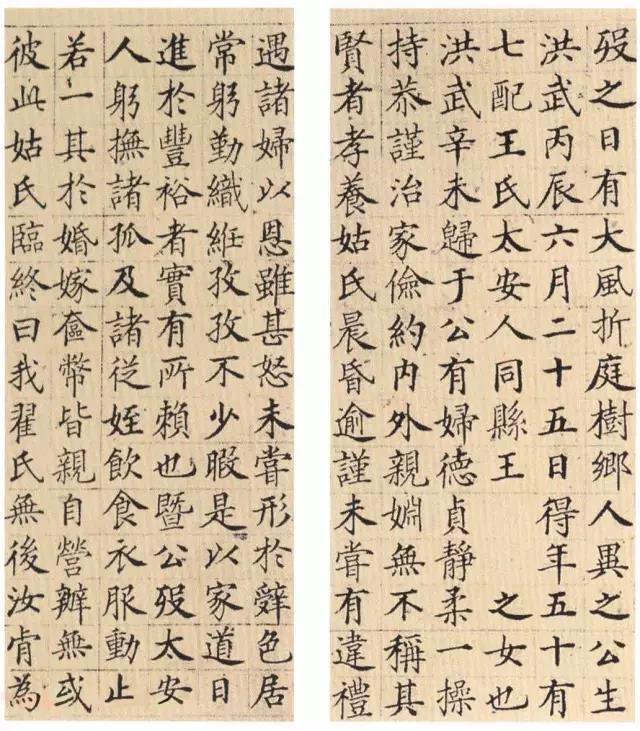 歿之日有大風折庭樹鄉人異之公生
洪武丙辰六月二十五日得年五十有
七配王氏太安人同縣王　之女也
洪武辛未歸于公有婦德貞靜柔一操
持恭謹治家儉約内外親婣無不稱其
賢者孝養姑氏晨昏逾謹未嘗有違禮
遇諸婦以恩雖甚怒未嘗形於辭色居
常躬勤織絍孜孜不少暇是以家道日
進於豐裕者實有所賴也暨公歿太安
人躬撫諸孤及諸從姪飲食衣服動止
若一其於婚嫁奩幣皆親自營辦無或
彼此姑氏臨終曰我翟氏無後汝肯為